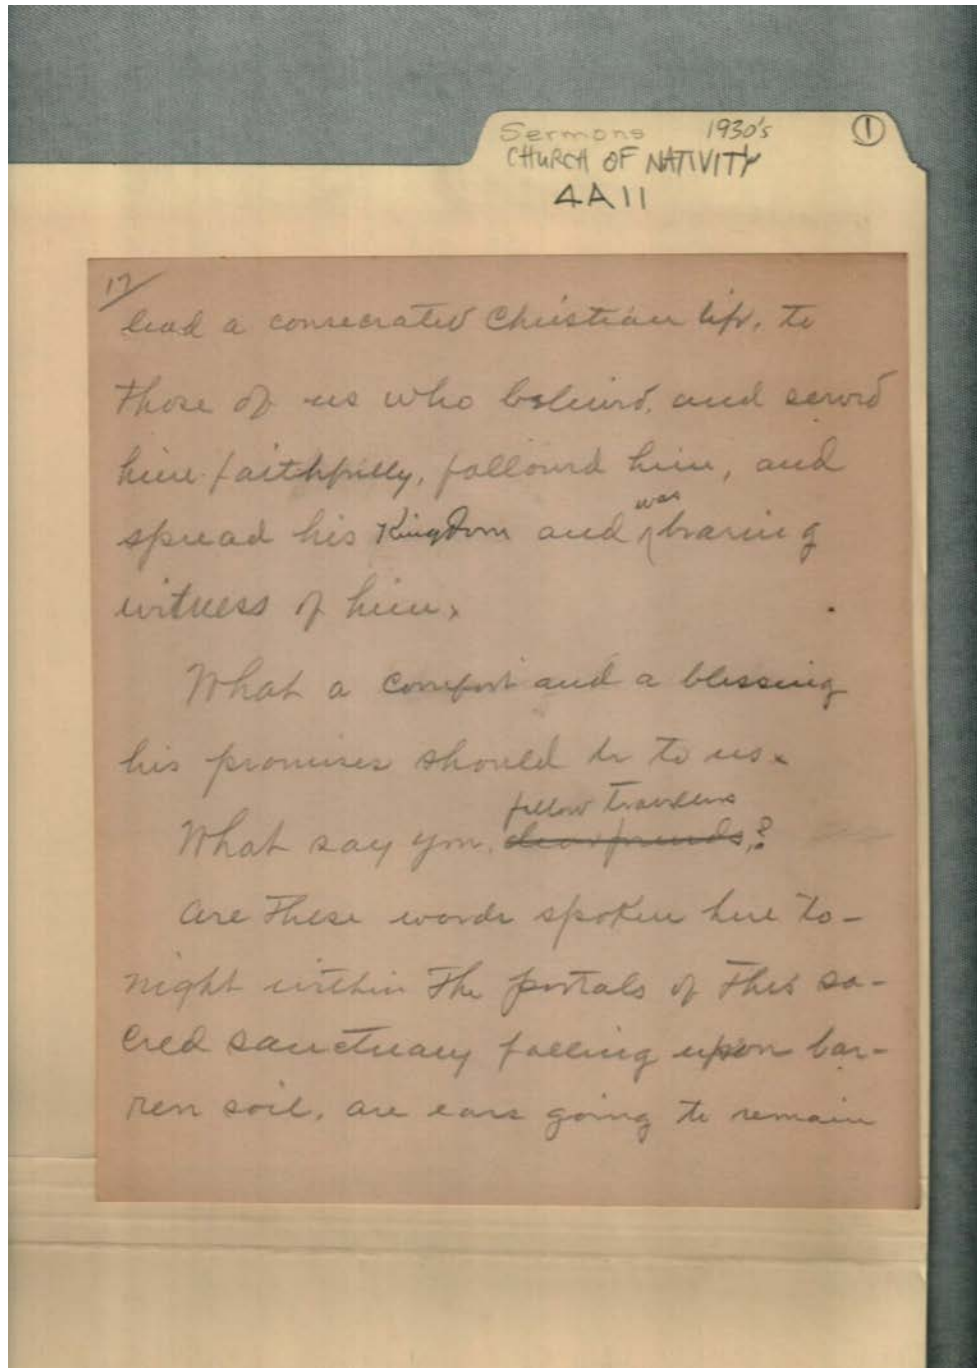 Sermons 1930's ①
CHURCH OF NATIVITY
4A11
17/
lead a consecrated Christian life, to
those of us who believed, and served
him faithfully, followed him, and
was
spread his Kingdom and bearing
witness of him.
What a comfort and a blessing
his promises should be to us.
fellow travelers
What say you, dear friends,?
Are these words spoken here to-
night within the portals of this sa-
cred sanctuary falling upon bar-
ren soil, are ears going to remain